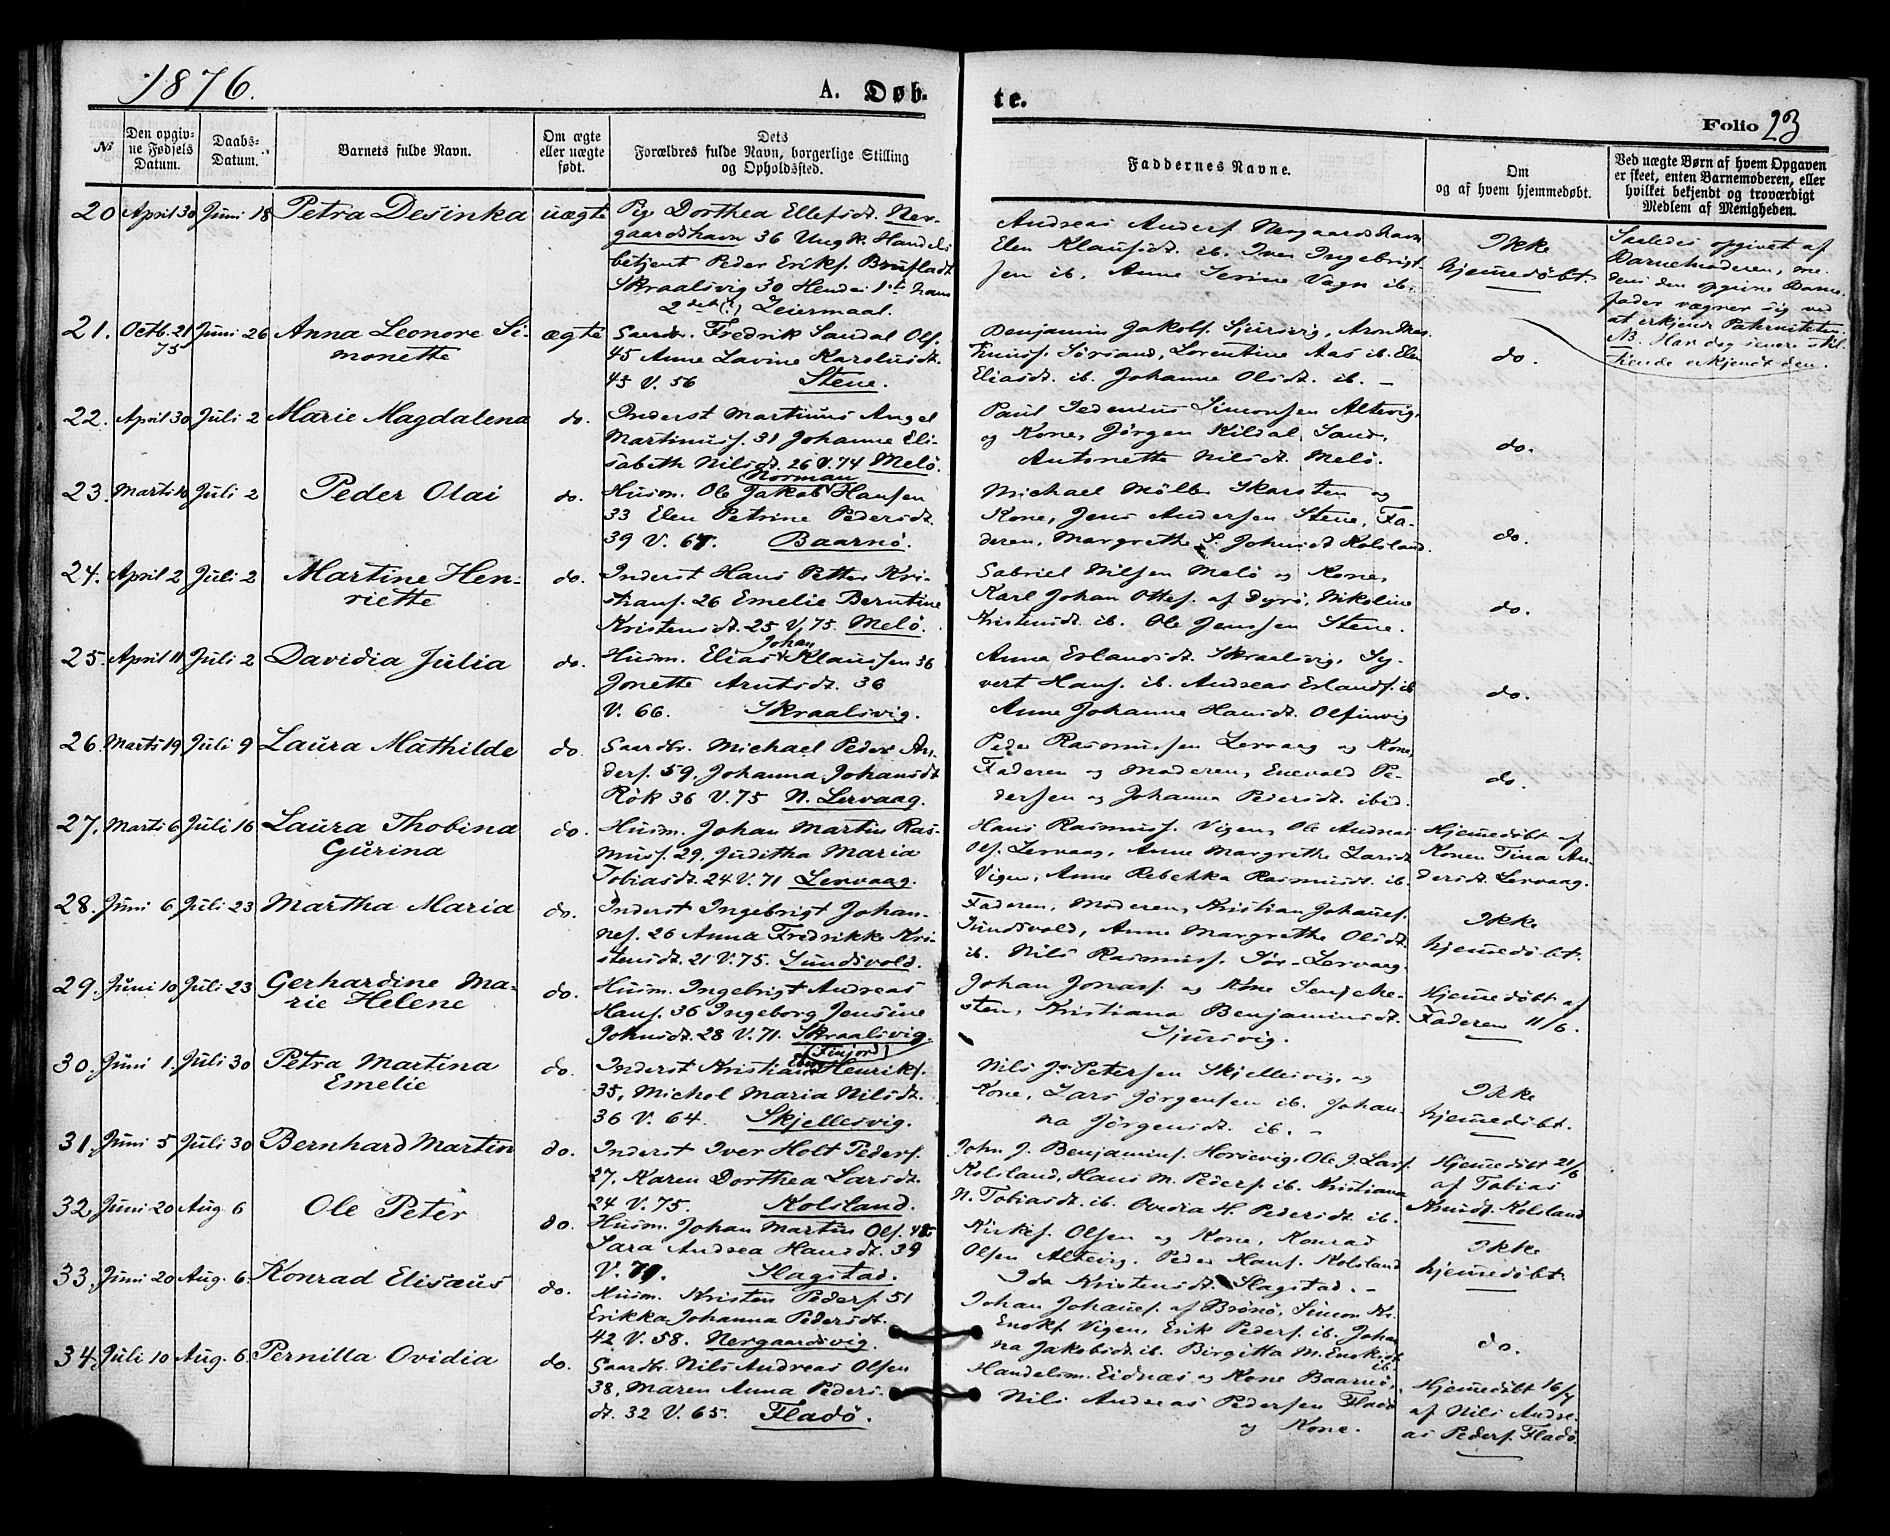 1876.
A. Døb-
te.
Folio 23
№
Den opgiv-
ne Fødsels
Datum.
Daabs-
Datum.
Barnets fulde Navn.
Om ægte
eller uægte
født.
Dets
Forældres fulde Navn, borgerlige Stilling
og Opholdssted.
Faddernes Navne.
Om
og af hvem hjemmedøbt.
Ved uægte Børn af hvem Opgaven
er skeet, enten Barnemoderen, eller
hvilket bekjendt og troværdigt
Medlem af Menigheden.
20 April 30 Juni 18 Petra Desinka uægte
Pig. Dorthea Ellefsdt. Ner-
gaardshavn 36 Ungk. Handels
betjent Peder Eriks. Brufladt
Skraalsvig 30 Hendes 1ste hans
2det (?) Leiermaal.
Andreas Anders. Nergaardshavn
Elen Klausdt. ib. Iver Ingebrigt-
sen ib. Anne Serine Vagn ib.
Ikke
hjemmedøbt.
Saaledes opgivet af
Barnemoderen, me-
dens den opgivne Barne-
fader vægrer sig ved
at erkjende Paterniteten.
NB. Har dog senere stil-
tiende erkjendt den.
21. Octb. 21 75 Juni 26 Anna Leonore Si-
monette
ægte
Gaardbr. Fredrik Sandal Ols.
45 Anne Lavine Karolusdt.
43 V. 56 Stene.
Benjamin Jakobs. Sjursvig, Arondkes
Knuds. Sørsand, Lorentine Aas ib. Elen
Eliasdt. ib. Johanne Olsdt. ib. -
do.
22. April 30 Juli 2 Marie Magdalena do.
Inderst Martinus Angel
Martinuss. 31 Johanne Eli-
sabeth Nilsdt. 26 V. 74 Melø.
Paul Jedenius Simonsen Altevig,
og Kone, Jørgen Kildal Sand,
Antonette Nilsdt. Melø.
do.
23. Marts 10 Juli 2 Peder Olai do.
Norman
Husm. Ole Jakob Hansen
33 Elen Petrine Pedersdt.
39 V. 67. Baarnø.
Michael Møller Skarsten og
Kone, Jens Andersen Stene, Fa-
deren, Margrethe S. Johnsdt Kolsland.
do.
24. April 2 Juli 2 Martine Hen-
riette
do.
Inderst Hans Petter Kri-
stians. 26 Emelie Berntine
Kristensdt. 25 V. 75. Melø.
Gabriel Nilsen Melø og Kone,
Karl Johan Ottes. af Dyrø, Nikoline
Kristensdt. ib. Ole Jenssen Stene.
do.
25. April 11 Juli 2 Davidia Julia do.
Johan
Husm. Elias Klaussen 36
Jonette Arntsdt. 36
V. 66. Skraalsvig.
Anna Erlandsdt. Skraalsvig, Sy-
vert Hans. ib. Andreas Erlands. ib
Anne Johanne Hansdt. Olfinvig
do.
26. Marts 19 Juli 9 Laura Mathilde do.
Gaardbr. Michael Peder An-
ders. 59, Johanna Johansdt
Røk 36 V. 75 N. Lervaag.
Peder Rasmussen Lervaag og Kone,
Faderen og Moderen, Enevold Pe-
dersen og Johanna Pedersdt. ibid.
do.
27. Marts 6 Juli 16 Laura Thobina
Gurina
do.
Husm. Johan Martin Ras-
muss. 29, Juditha Maria
Tobiasdt. 24 V. 71 Lervaag.
Hans Rasmuss. Vigen, Ole Andreas
Ols. Lervaag, Anne Margrethe Larsdt.
Vigen, Anne Rebekka Rasmusdt. ib.
Hjemmedøbt af
Konen Tina An-
dersdt. Lervaag.
28. Juni 6 Juli 23 Martha Maria do.
Inderst Ingebrigt Johan-
nes. 26 Anna Fredrikke Kri-
stensdt. 21 V. 75. Sundsvold.
Faderen, Moderen, Kristian Johanes.
Sundsvold, Anne Margrethe Olsdt.
ib. Nils Rasmuss. Sør-Lervaag.
Ikke
hjemmedøbt.
29. Juni 10 Juli 23 Gerhardine Ma-
rie Helene
do.
Husm. Ingebrigt Andreas
Hans. 36 Ingeborg Jensine
Johnsdt. 28 V. 71. Skraalsvig.
(Finjord)
Johan Jonas. og Kone Senjehe-
sten, Kristiana Benjaminsdt.
Sjursvig.
Hjemmedøbt af
Faderen 11/6.
30. Juni 1. Juli 30 Petra Martina
Emelie
do.
Inderst Kristian Henriks.
35, Michel Maria Nilsdt.
36 V. 64. Skjellesvig.
Nils J. Petersen Skjellesvig, og
Kone, Lars Jørgensen ib. Johan-
na Jørgensdt. ib. -
Ikke
hjemmedøbt.
31. Juni 5 Juli 30 Bernhard Martin do.
Inderst Iver Holt Peders.
27, Karen Dorthea Larsdt.
24 V. 75. Kolsland.
John J. Benjamins. Horsevig, Ole J. Lars.
Kolsland, Hans M. Peders. ib. Kristiana
N. Tobiasdt. ib. Ovidia H. Pedersdt. ib.
Hjemmedøbt 21/6
af Tobias
Knuds. Kolsland
32. Juni 20 Aug. 6 Ole Peter do.
Husm. Johan Martin Ols. 48
Sara Andrea Hansdt. 39
V. 70. Slagstad.
Kirkes. Olsen og Kone, Konrad
Olsen Altevig. Peder Hans. Kolsland
Ida Kristensdt. Slagstad. -
Ikke
hjemmedøbt.
33. Juni 20 Aug. 6. Konrad Elisæus do.
Husm. Kristen Peders. 51
Erikka Johanna Pedersdt.
42 V. 58. Nergaardsvig.
Johan Johanes. af Brønø, Simon Kr.
Enoks. Vigen, Erik Peders. ib. Johan
na Jakobsdt. ib. Birgitta M. Enoksdt.
ib.
do.
34. Juli 10 Aug. 6. Pernilla Ovidia do.
Gaardbr. Nils Andreas Olsen
38, Maren Anna Peders-
dt. 32 V. 65. Fladø.
Handelsm. Eidnæs og Kone Baarnø,
Nils Andreas Pedersen Fladø
og Kone.
Hjemmedøbt 16/7
af Nils Andre-
as Peders. Fladø.